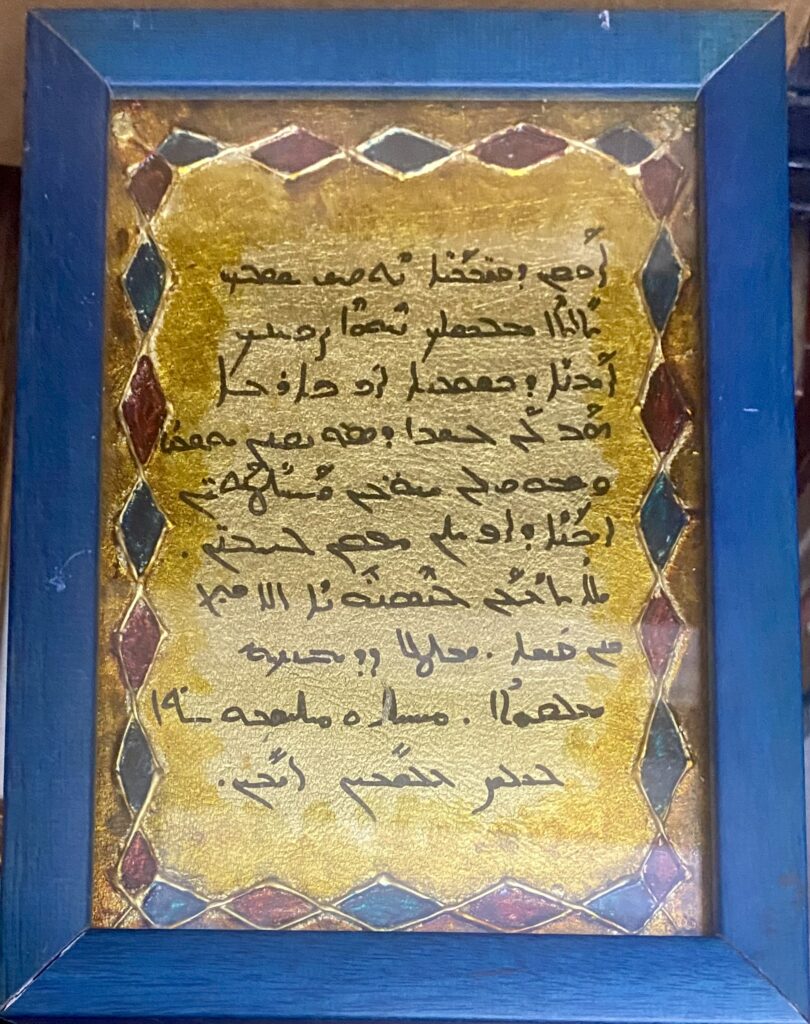 ܐܒܘܢ ܕܒܫܡܝܐ ܢܬܩܕܫ ܫܡܟ
ܬܐܬܐ ܡܠܟܘܬܟ ܢܗܘܐ ܨܒܝܢܟ
ܐܝܟܢܐ ܕܒܫܡܝܐ ܐܦ ܒܐܪܥܐ
ܗܒ ܠܢ ܠܚܡܐ ܕܣܘܢܩܢܢ ܝܘܡܢܐ
ܘܫܒܘܩ ܠܢ ܚܘܒܝܢ ܘܚܛܗܝܢ
ܐܝܟܢܐ ܕܐܦ ܚܢܢ ܫܒܩܢ ܠܚܝܒܝܢ.
ܠܐ ܬܥܠܢ ܠܢܣܝܘܢܐ ܐܠܐ ܦܨܢ
ܡܢ ܒܝܫܐ. ܡܛܠ ܕܕܝܠܟ ܗܝ
ܡܠܟܘܬܐ. ܘܚܝܠܐ ܘܬܫܒܘܚܬܐ
ܠܥܠܡ ܥܠܡܝܢ ܐܡܝܢ.